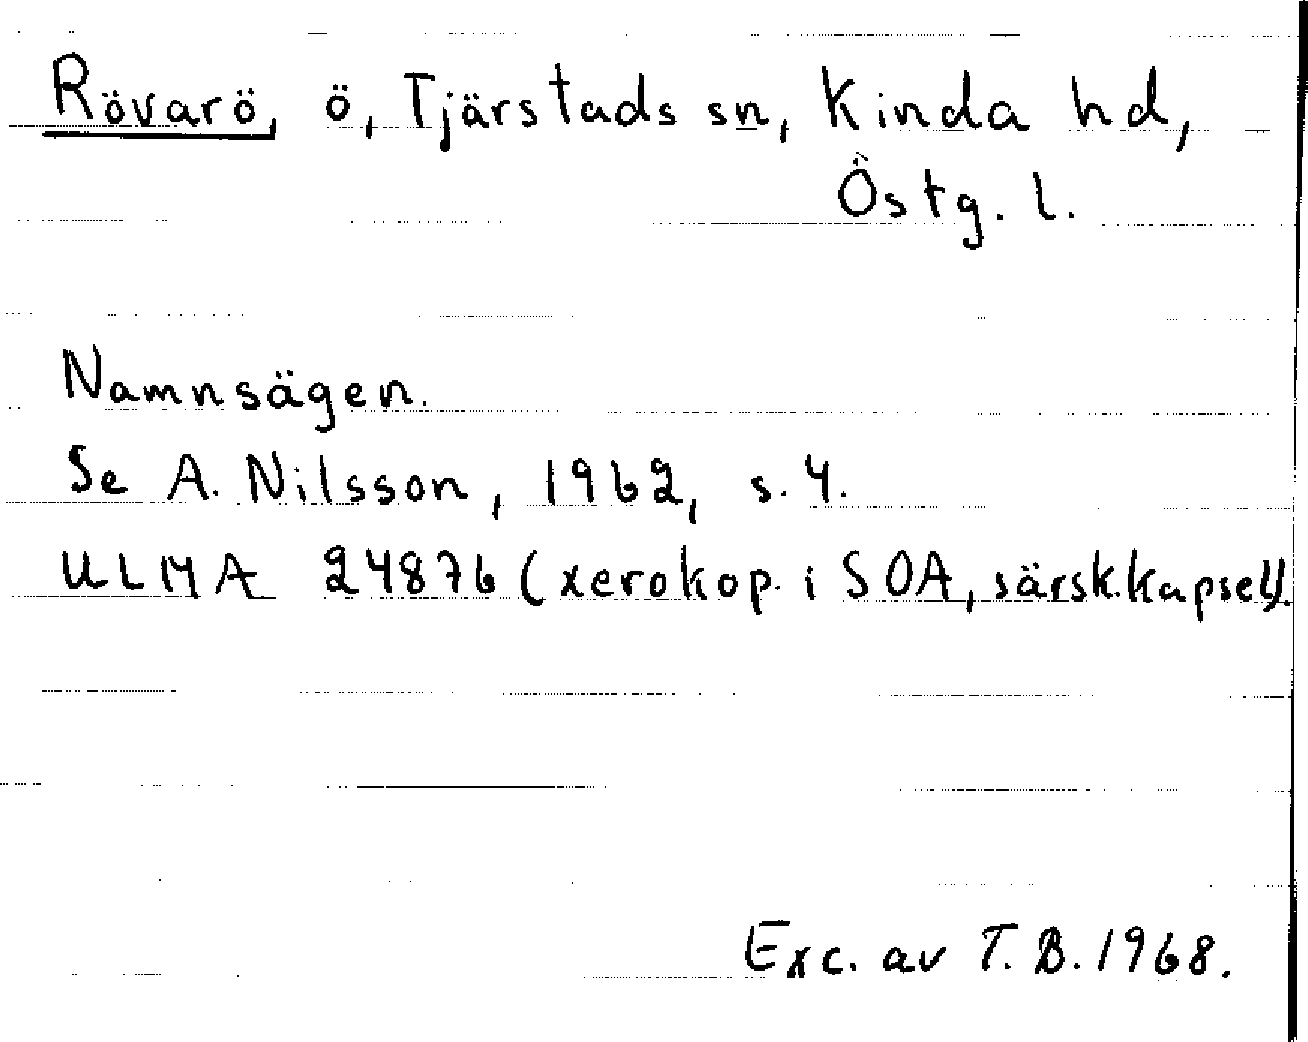 Rövarö, ö, Tjärstads sn, Kinda hd,
Östg. l.
Namnsägen.
Se A. Nilsson, 1962, s. 4.
ULMA 24876 (xerokop. i SOA, särsk. kapsel).
Exc. av T. B. 1968.